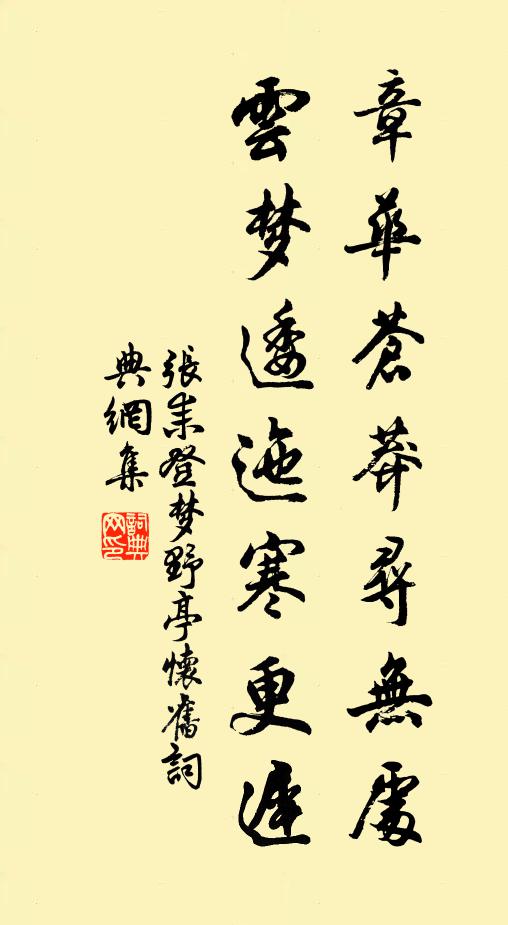 章華蒼莽尋無處
雲梦逶迤寒更遲
張耒登梦野亭懷舊詞
典網集
詞典网印